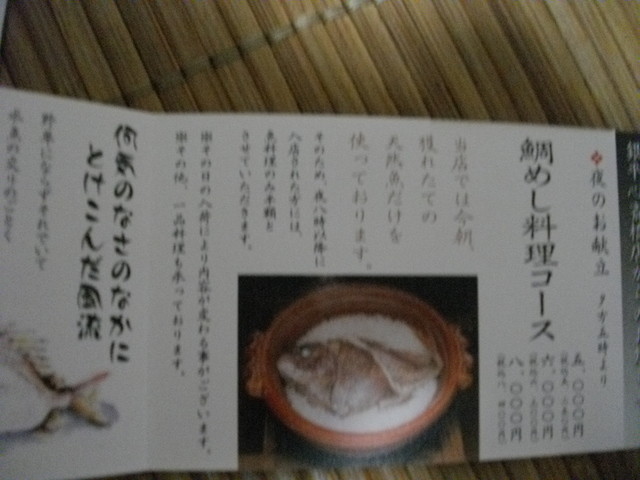 夜のお献立 夕方五時より
鯛めし料理コース
五、〇〇〇円
六、〇〇〇円
八、〇〇〇円
当店では今朝、
獲れたての
天然魚だけを
使っております。
そのため、夜八時以降に
入店された方には、
魚料理のみ半額と
させていただきます。
※その日の入荷により内容が変わる事がございます。
※その他、一品料理も承っております。
何気のなさのなかに
とけこんだ風流